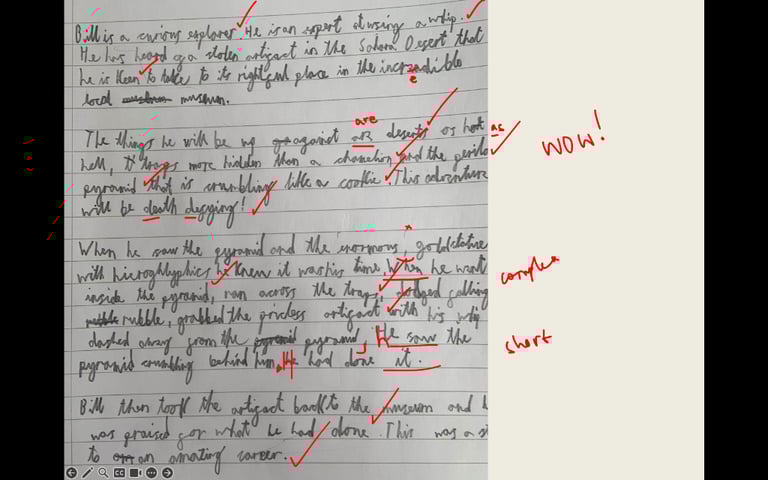 Bill is a curious explorer. He is an expert at using a whip.
He has heard of a stolen artifact in the Sahara Desert that
he is keen to take to its rightful place in the incredible
e
local museum.
are
The things he will be up against are deserts as hot as
hell, traps more hidden than a chamelion and the perilo
WOW!
pyramid that is crumbling like a cookie. This adventure
will be death defying!
When he saw the pyramid and the enormous, gold statue
with hieroghlyphics he knew it was his time. When he went
complex
inside the pyramid, ran across the traps, dodged falling
rubble, grabbed the priceless artifact with his whip
dashed away from the pyramid, He saw the
short
pyramid crumbling behind him. He had done it.
Bill then took the artifact back to the museum and h
was praised for what he had done. This was a st
to an amazing career.